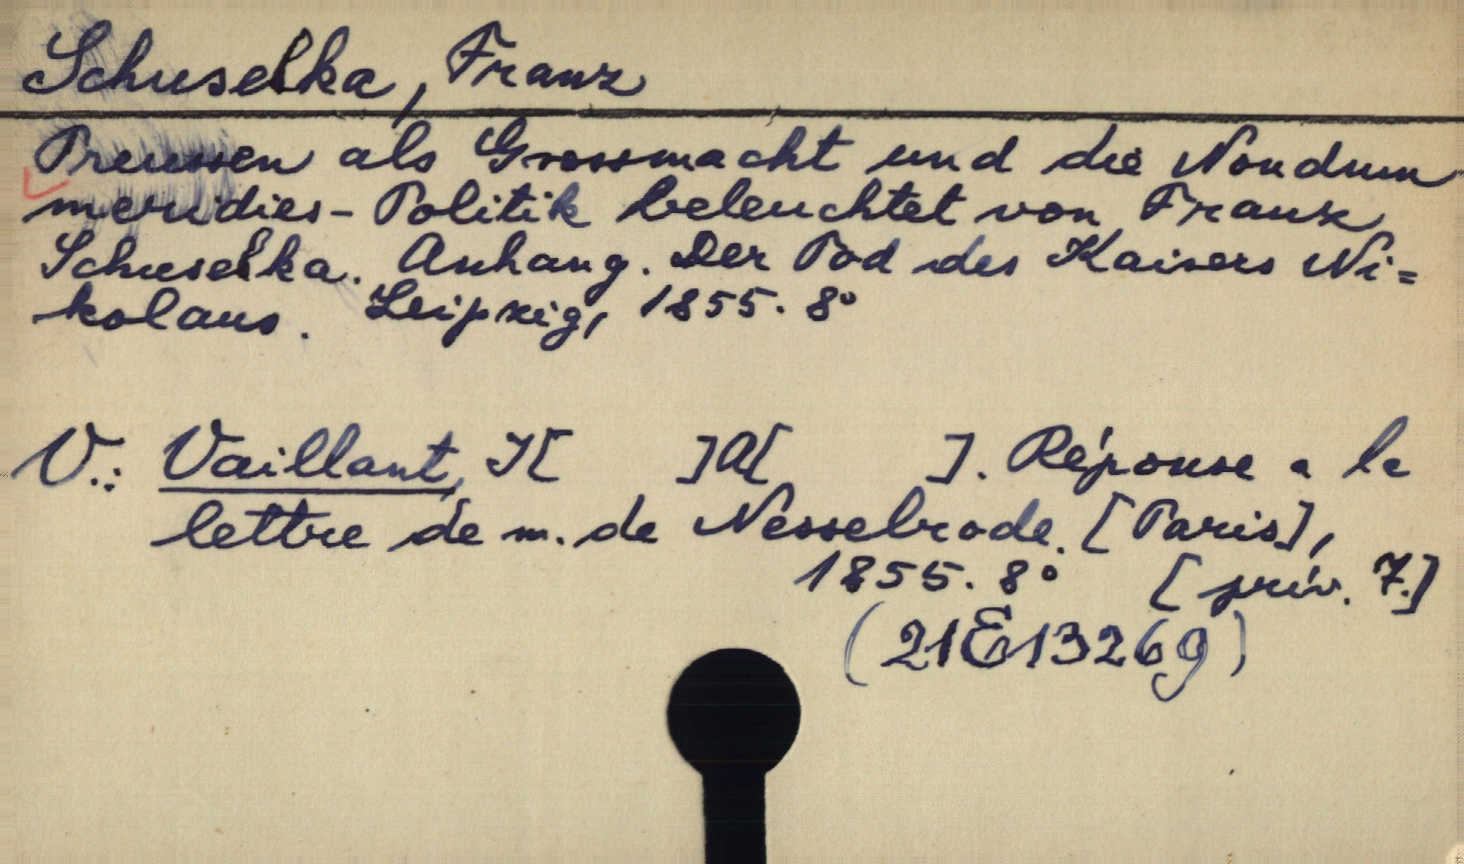 Schuselka, Franz
Preussen als Grossmacht und die Nondum
meridies-Politik beleuchtet von Franz
Schuselka. Anhang. Der Tod des Kaisers Ni=
kolaus. Leipzig, 1855. 8°
V.: Vaillant, J[ ]A[ ]. Réponse a la
lettre de m. de Nesselrode. [Paris],
1855. 8° [priv. 7.]
(21E13269)